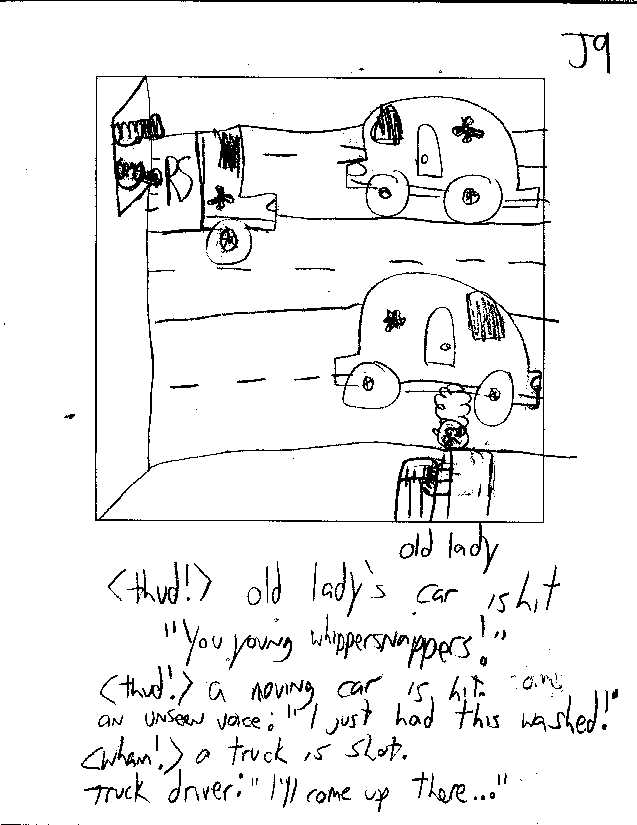 J9
ERS
old lady
<thud!> old lady's car is hit
"You young whippersnappers!"
<thud!> a moving car is hit.
an unseen voice: "I just had this washed!"
<wham!> a truck is shot.
Truck driver: "I'll come up there..."